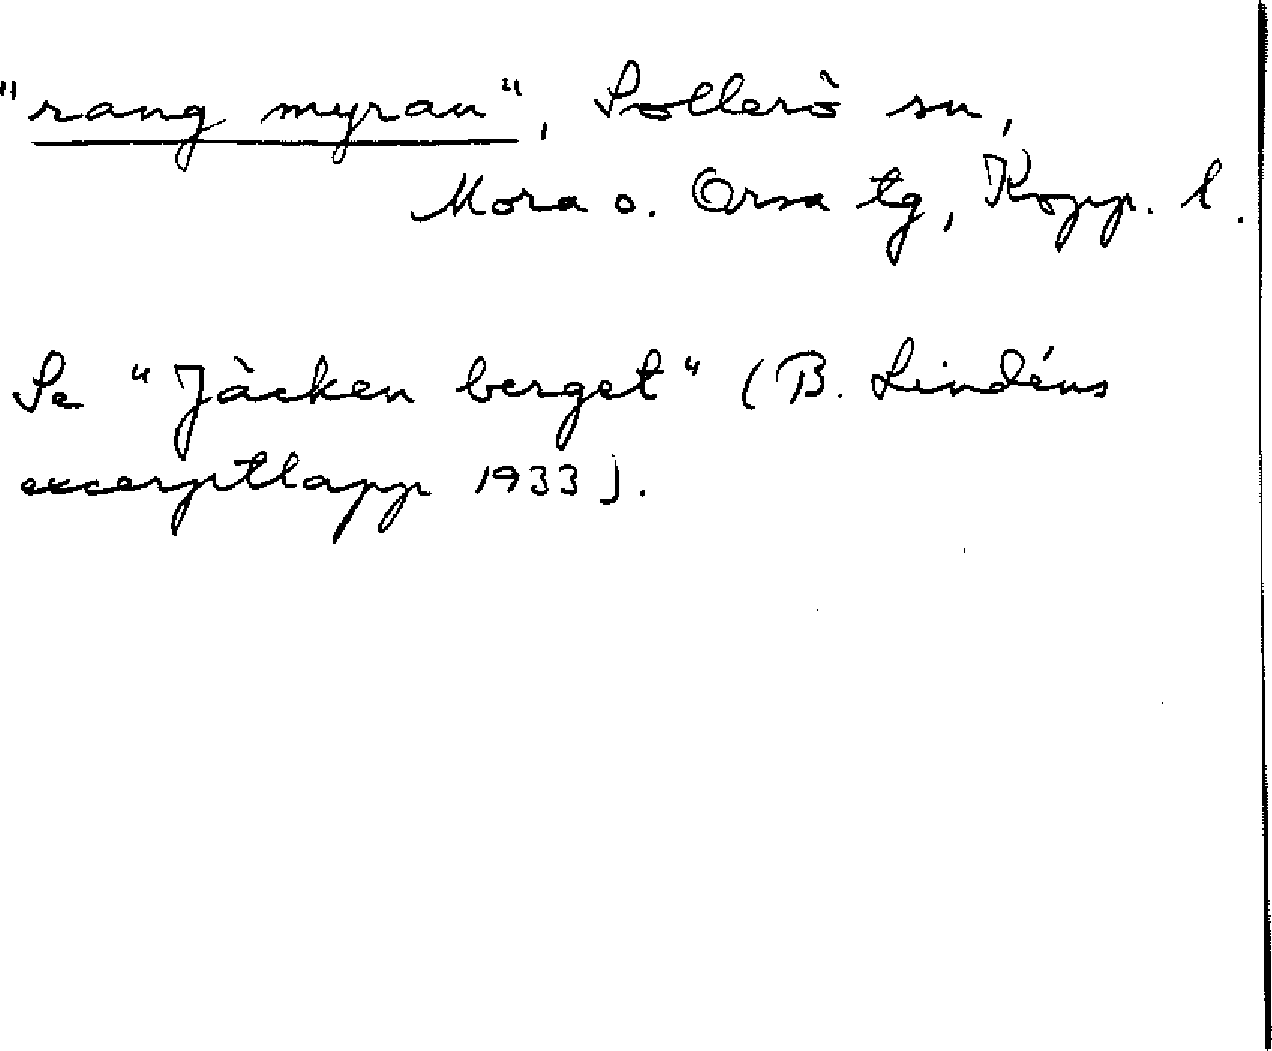 "rang myran", Sollerö sn,
Mora o. Orsa tg, Kopp. l.
Se "Jäcken berget" (B. Lindéns
excerptlapp 1933).